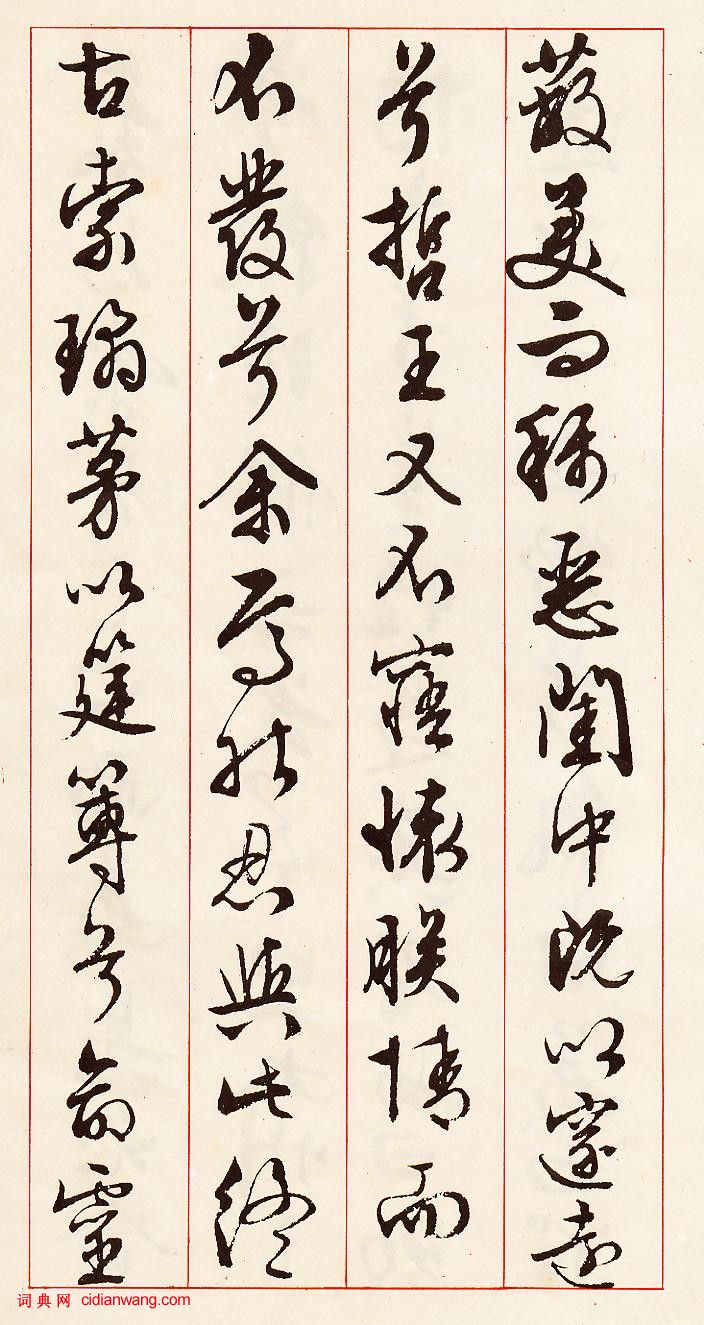 蔽美而稱惡閨中既以邃遠
兮哲王又不寤懷朕情而
不發兮余焉能忍與此終
古索璚茅以筳篿兮命靈
词典网 cidianwang.com